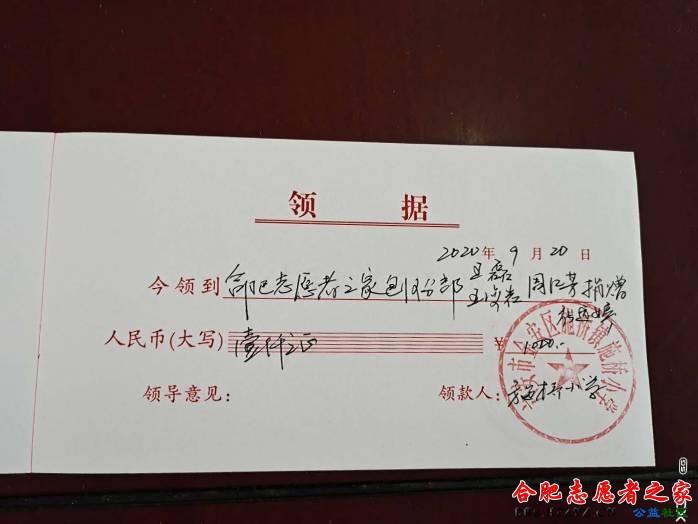 领 据
2020年 9 月 20 日
今领到 合肥志愿者之家 王磊 捐赠
人民币(大写) 壹仟元正 ¥ 1000.-
领导意见: 领款人: 施桥小学
六安市金安区施桥镇施桥小学
合肥志愿者之家
公益社区